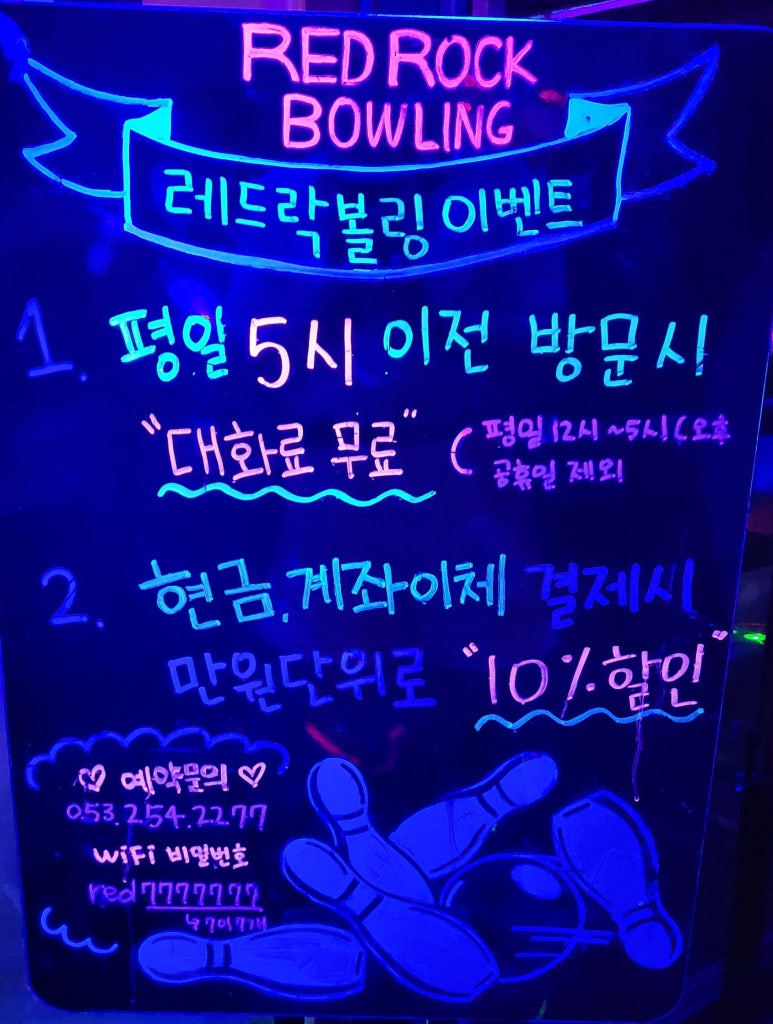 RED ROCK
BOWLING
레드락볼링 이벤트
1. 평일 5시 이전 방문시
"대화료 무료" (평일 12시 ~5시 (오후
공휴일 제외
2. 현금, 계좌이체 결제시
만원단위로 "10% 할인"
♡ 예약문의 ♡
053.254.2277
WiFi 비밀번호
red7777777
↳ 7이 7개